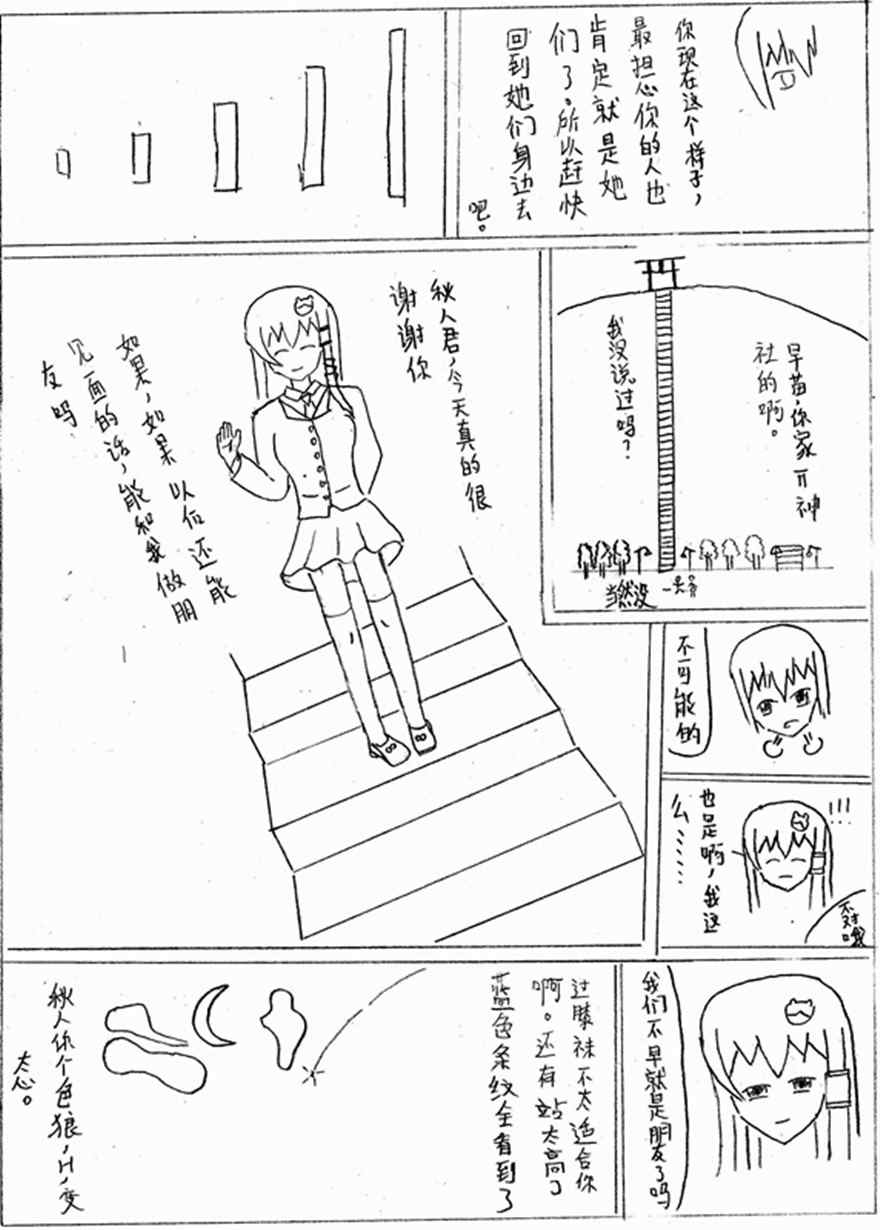 你现在这个样子，
最担心你的人也
肯定就是她
们了。所以赶快
回到她们身边去
吧。
早苗，你家开神
社的啊。
我没说过吗？
当然没
秋人君，今天真的很
谢谢你
如果，如果以后还能
见面的话，能和我做朋
友吗
不可能的
也是啊，我这
么……
!!!
不对哦
我们不早就是朋友了吗
过膝袜不太适合你
啊。还有站太高了
蓝色条纹全看到了
秋人你个色狼，H，变
太心。